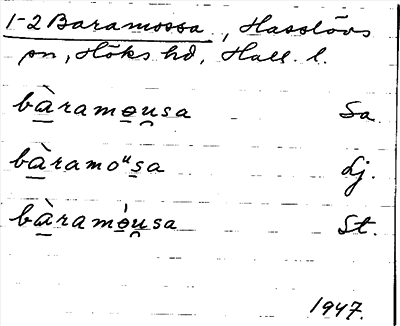 1-2 Baramossa, Hasslövs
sn, Höks hd, Hall. l.
bàramɵu̯sa Sa.
bàramoᵘsa Lj.
bàramɵ́u̯sa St.
1947.